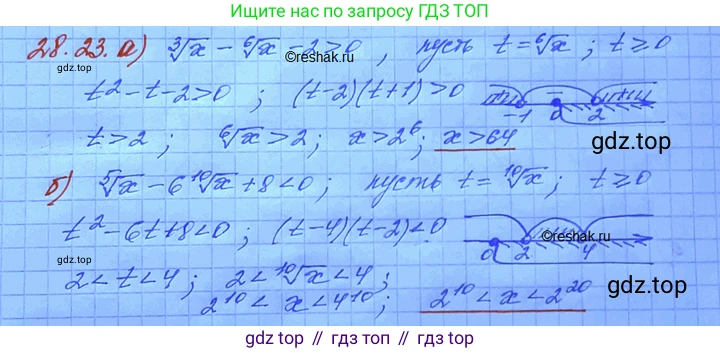 Ищите нас по запросу ГДЗ ТОП
28.23. а) ∛x - ⁶√x - 2 > 0 , пусть t = ⁶√x ; t ≥ 0
gdz.top
©reshak.ru
t² - t - 2 > 0 ; (t-2)(t+1) > 0
+ - +
-1 0 2
t > 2 ; ⁶√x > 2 ; x > 2⁶ ; x > 64
gdz.top
б) ⁵√x - 6 ¹⁰√x + 8 < 0 ; пусть t = ¹⁰√x ; t ≥ 0
t² - 6t + 8 < 0 ; (t-4)(t-2) < 0
©reshak.ru
0 2 4
gdz.top
2 < t < 4 ; 2 < ¹⁰√x < 4 ;
2¹⁰ < x < 4¹⁰ ; 2¹⁰ < x < 2²⁰
gdz.top
gdz.top // gdz.top // gdz.top // gdz.top // gdz.top